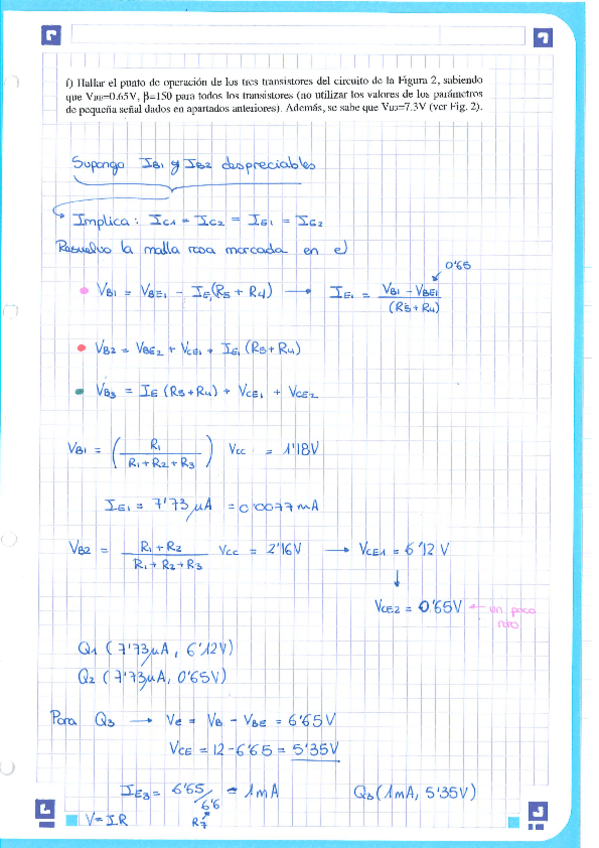 f) Hallar el punto de operación de los tres transistores del circuito de la Figura 2, sabiendo
que VBE=0.65V, β=150 para todos los transistores (no utilizar los valores de los parámetros
de pequeña señal dados en apartados anteriores). Además, se sabe que VB3=7.3V (ver Fig. 2).
Supongo IB1 y IB2 despreciables
Implica: IC1 = IC2 = IE1 = IE2
Resuelvo la malla rosa marcada en e)
0'65
• VB1 = VBE1 - IE1(R5 + R4) → IE1 = VB1 - VBE1 / (R5 + R4)
• VB2 = VBE2 + VCE1 + IE1 (R5 + R4)
• VB3 = IE (R5 + R4) + VCE1 + VCE2
VB1 = (R1 / R1 + R2 + R3) Vcc = 1'18V
IE1 = 7'73 μA = 0'0077 mA
VB2 = R1 + R2 / R1 + R2 + R3 Vcc = 2'16V → VCE1 = 6'12 V
↓
VCE2 = 0'65V ← un poco
raro
Q1 (7'73μA, 6'12V)
Q2 (7'73μA, 0'65V)
Para Q3 → Ve = VB - VBE = 6'65V
VCE = 12 - 6'65 = 5'35V
IE3 = 6'65 / 6'6 = 1mA Q3 (1mA, 5'35V)
V = I.R R7